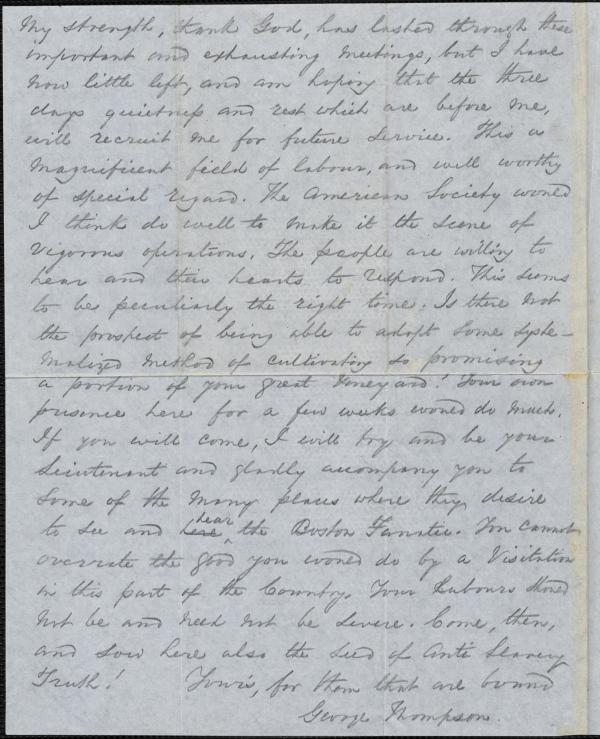 My strength, thank God, has lasted through these
important and exhausting meetings, but I have
now little left, and am hoping that the three
days quietness and rest which are before me,
will recruit me for future service. This is a
magnificent field of labour, and well worthy
of special regard. The American Society would
I think do well to make it the scene of
vigorous operations. The people are willing to
hear and their hearts to respond. This seems
to be peculiarly the right time. Is there not
the prospect of being able to adopt some syste-
matized method of cultivating so promising
a portion of your great Vineyard! Your own
presence here for a few weeks would do much.
If you will come, I will try and be your
Lieutenant and gladly accompany you to
some of the many places where they desire
to see and hear the Boston Fanatic. You cannot
overrate the good you would do by a Visitation
in this part of the Country. Your Labours should
not be and need not be severe. Come, then,
and sow here also the seed of Anti Slavery
Truth! Yours, for them that are bound
George Thompson.